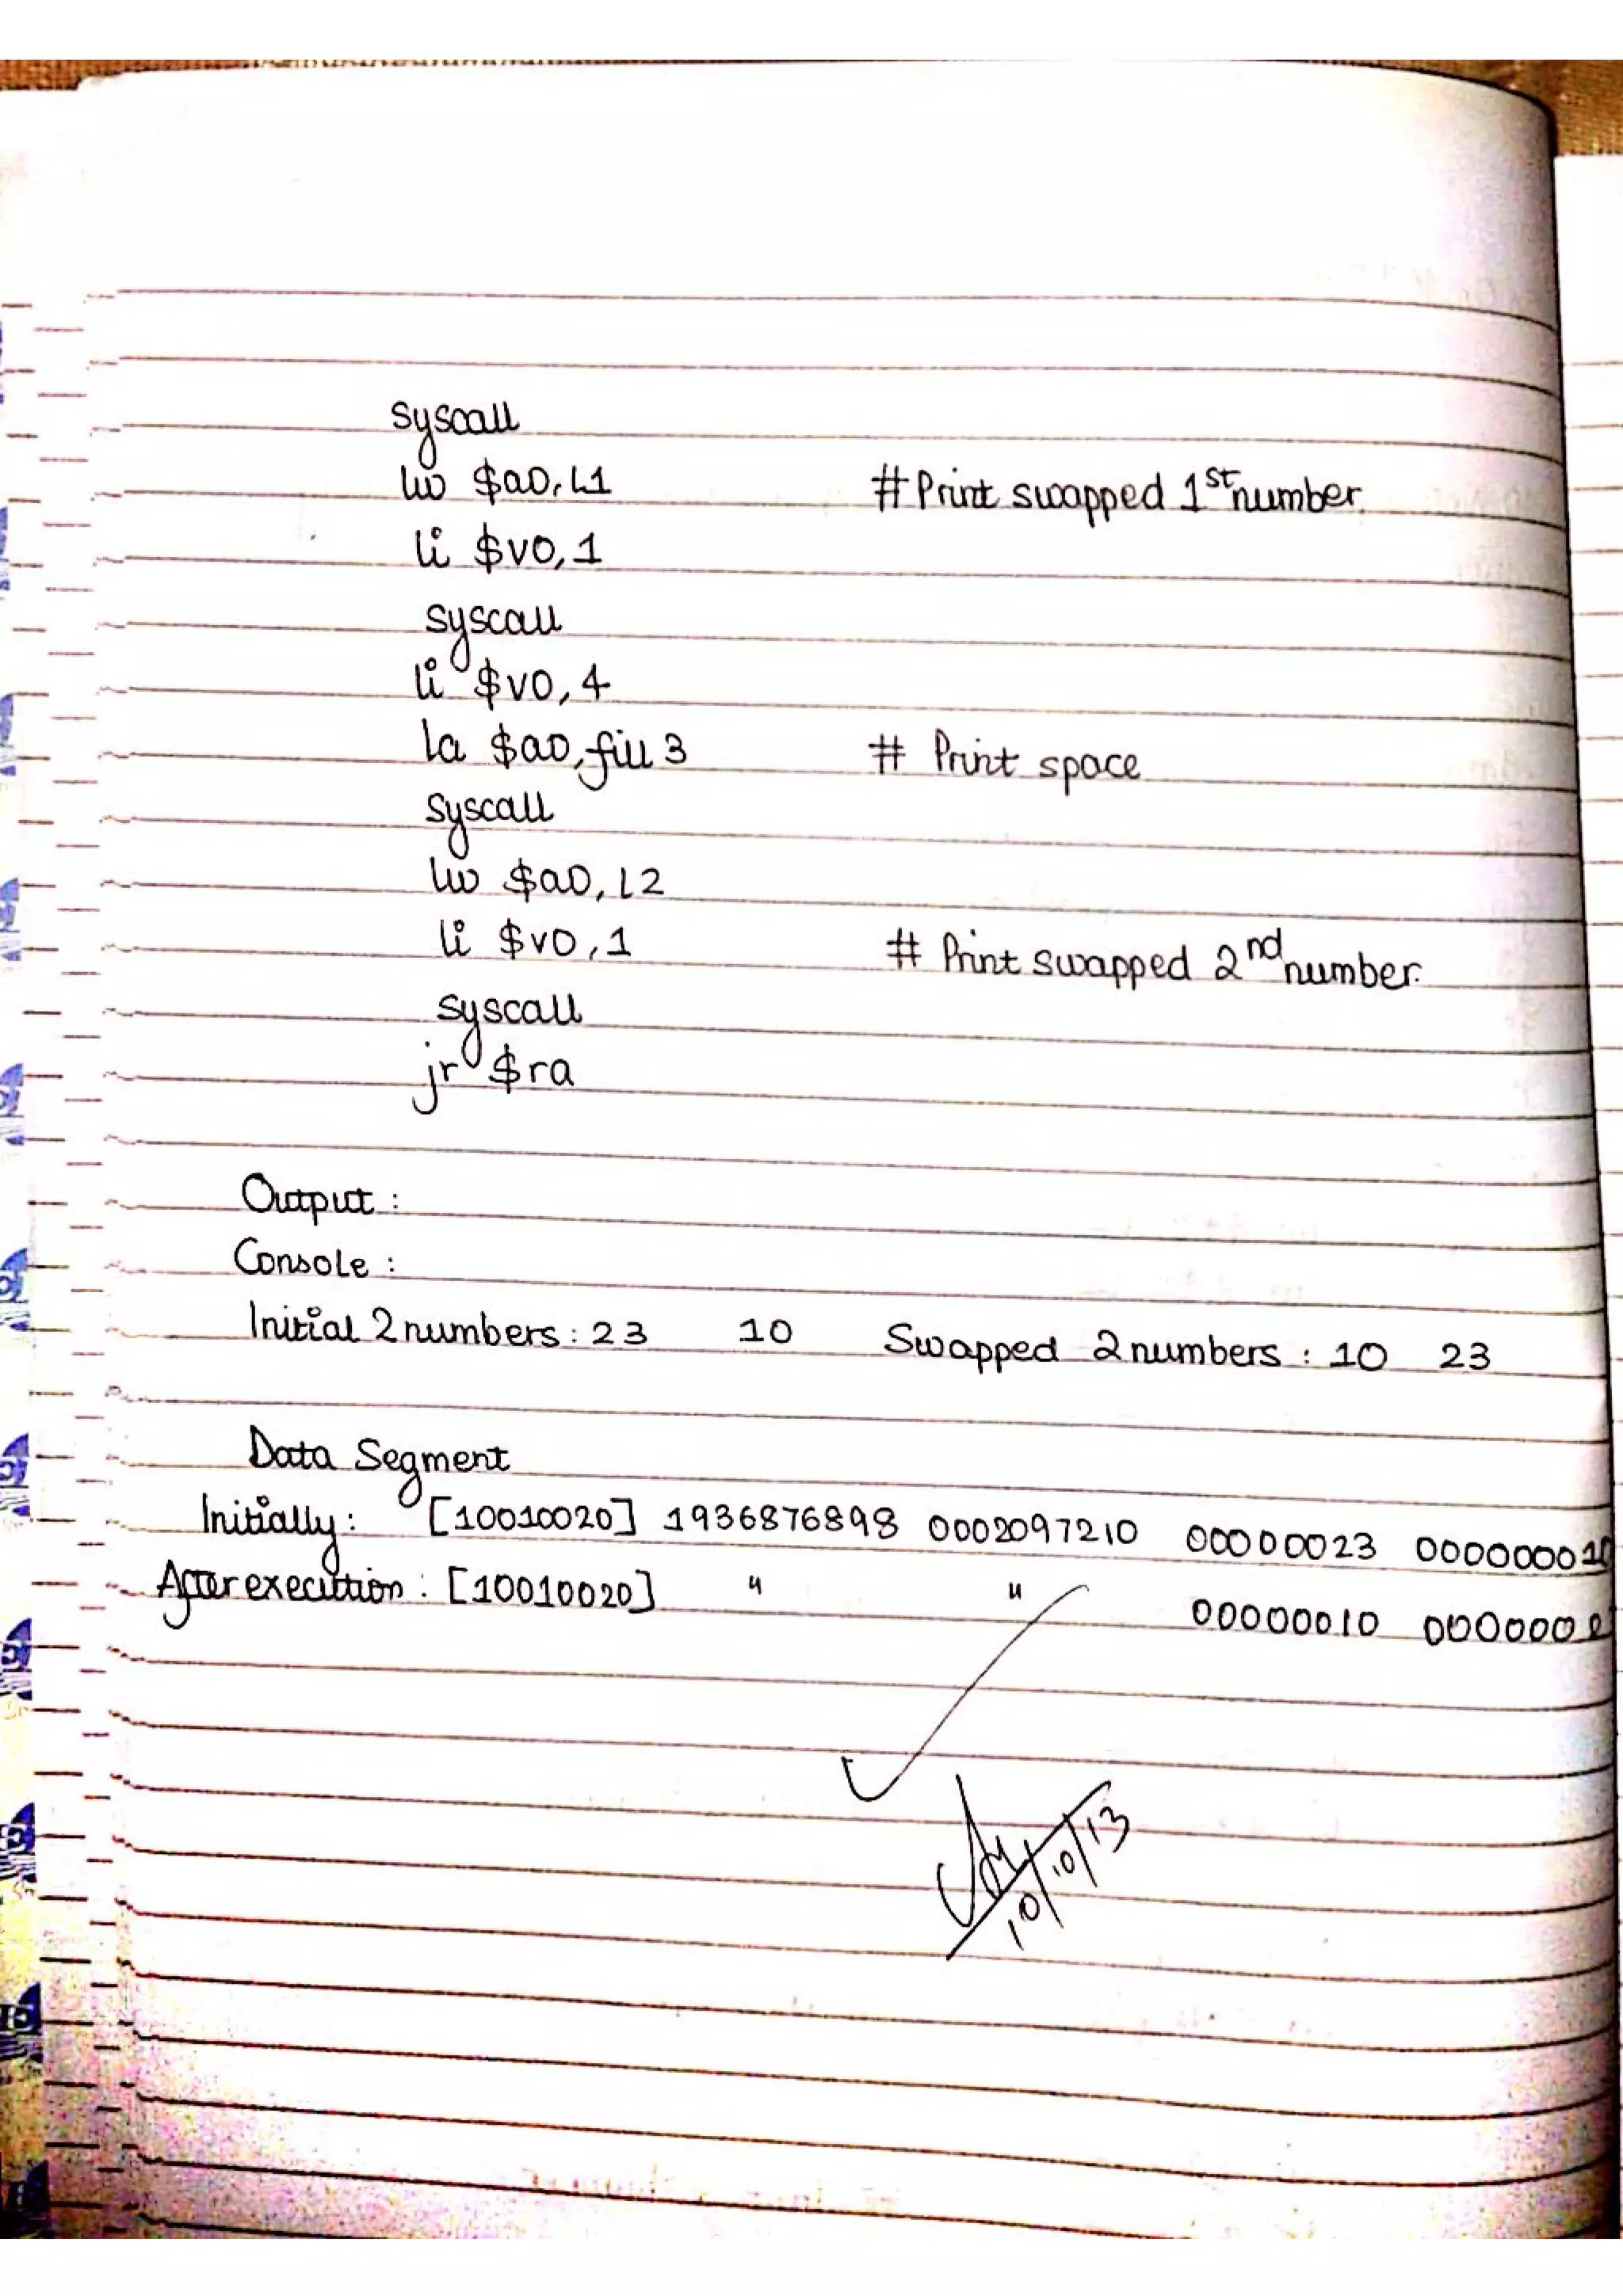 syscall
lw $a0, L1 # Print swapped 1st number.
li $v0, 1
syscall
li $v0, 4
la $a0, fill 3 # Print space
syscall
lw $a0, L2
li $v0, 1 # Print swapped 2nd number.
syscall
jr $ra
Output :
Console :
Initial 2 numbers : 23 10 Swapped 2 numbers : 10 23
Data Segment
Initially : [10010020] 1936876898 0002097210 00000023 00000010
After execution : [10010020] " " 00000010
10/10/13